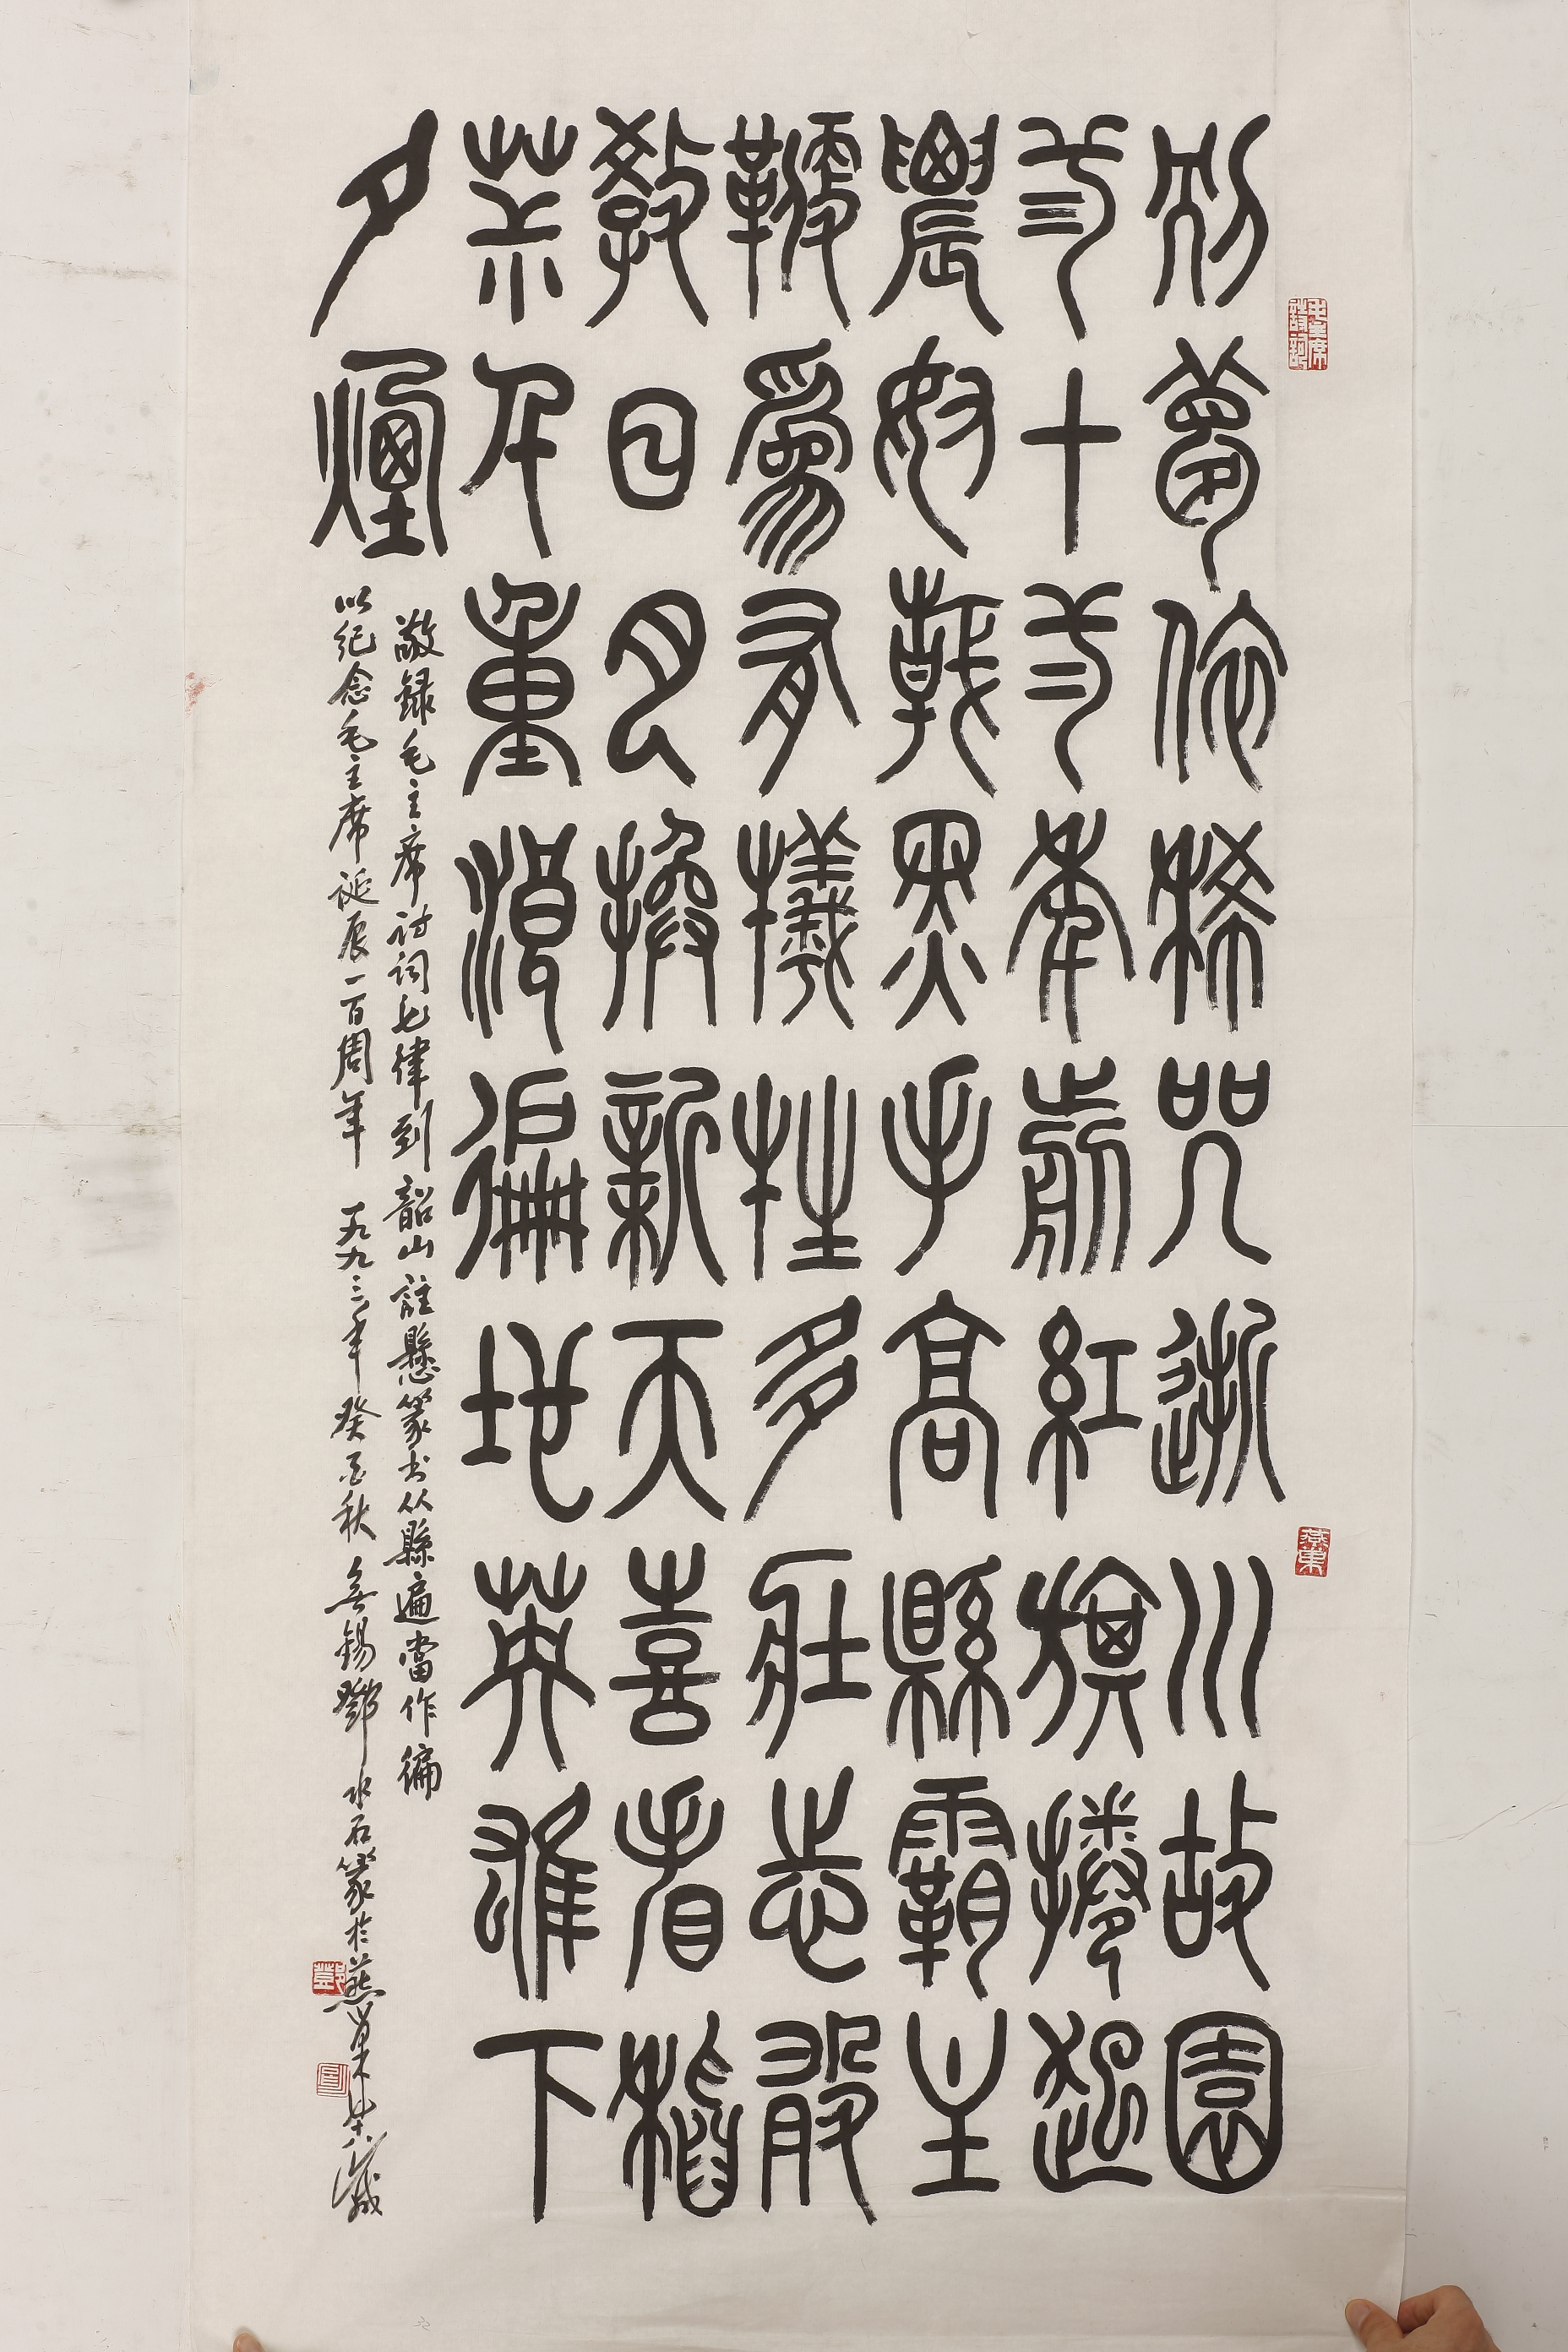 毛主席詩詞
燕巢
別夢依稀咒逝川故園
弎十弍年前紅旗捲起
農奴戟黑手高縣霸主
鞭為有犧牲多壯志敢
教日月換新天喜看稻
菽千重浪徧地英雄下
夕煙
敬録毛主席诗词七律到韶山註懸篆书从縣遍當作徧
以紀念毛主席诞辰一百周年 一九九三年癸酉秋無錫鄧水石篆於燕巢
鄧